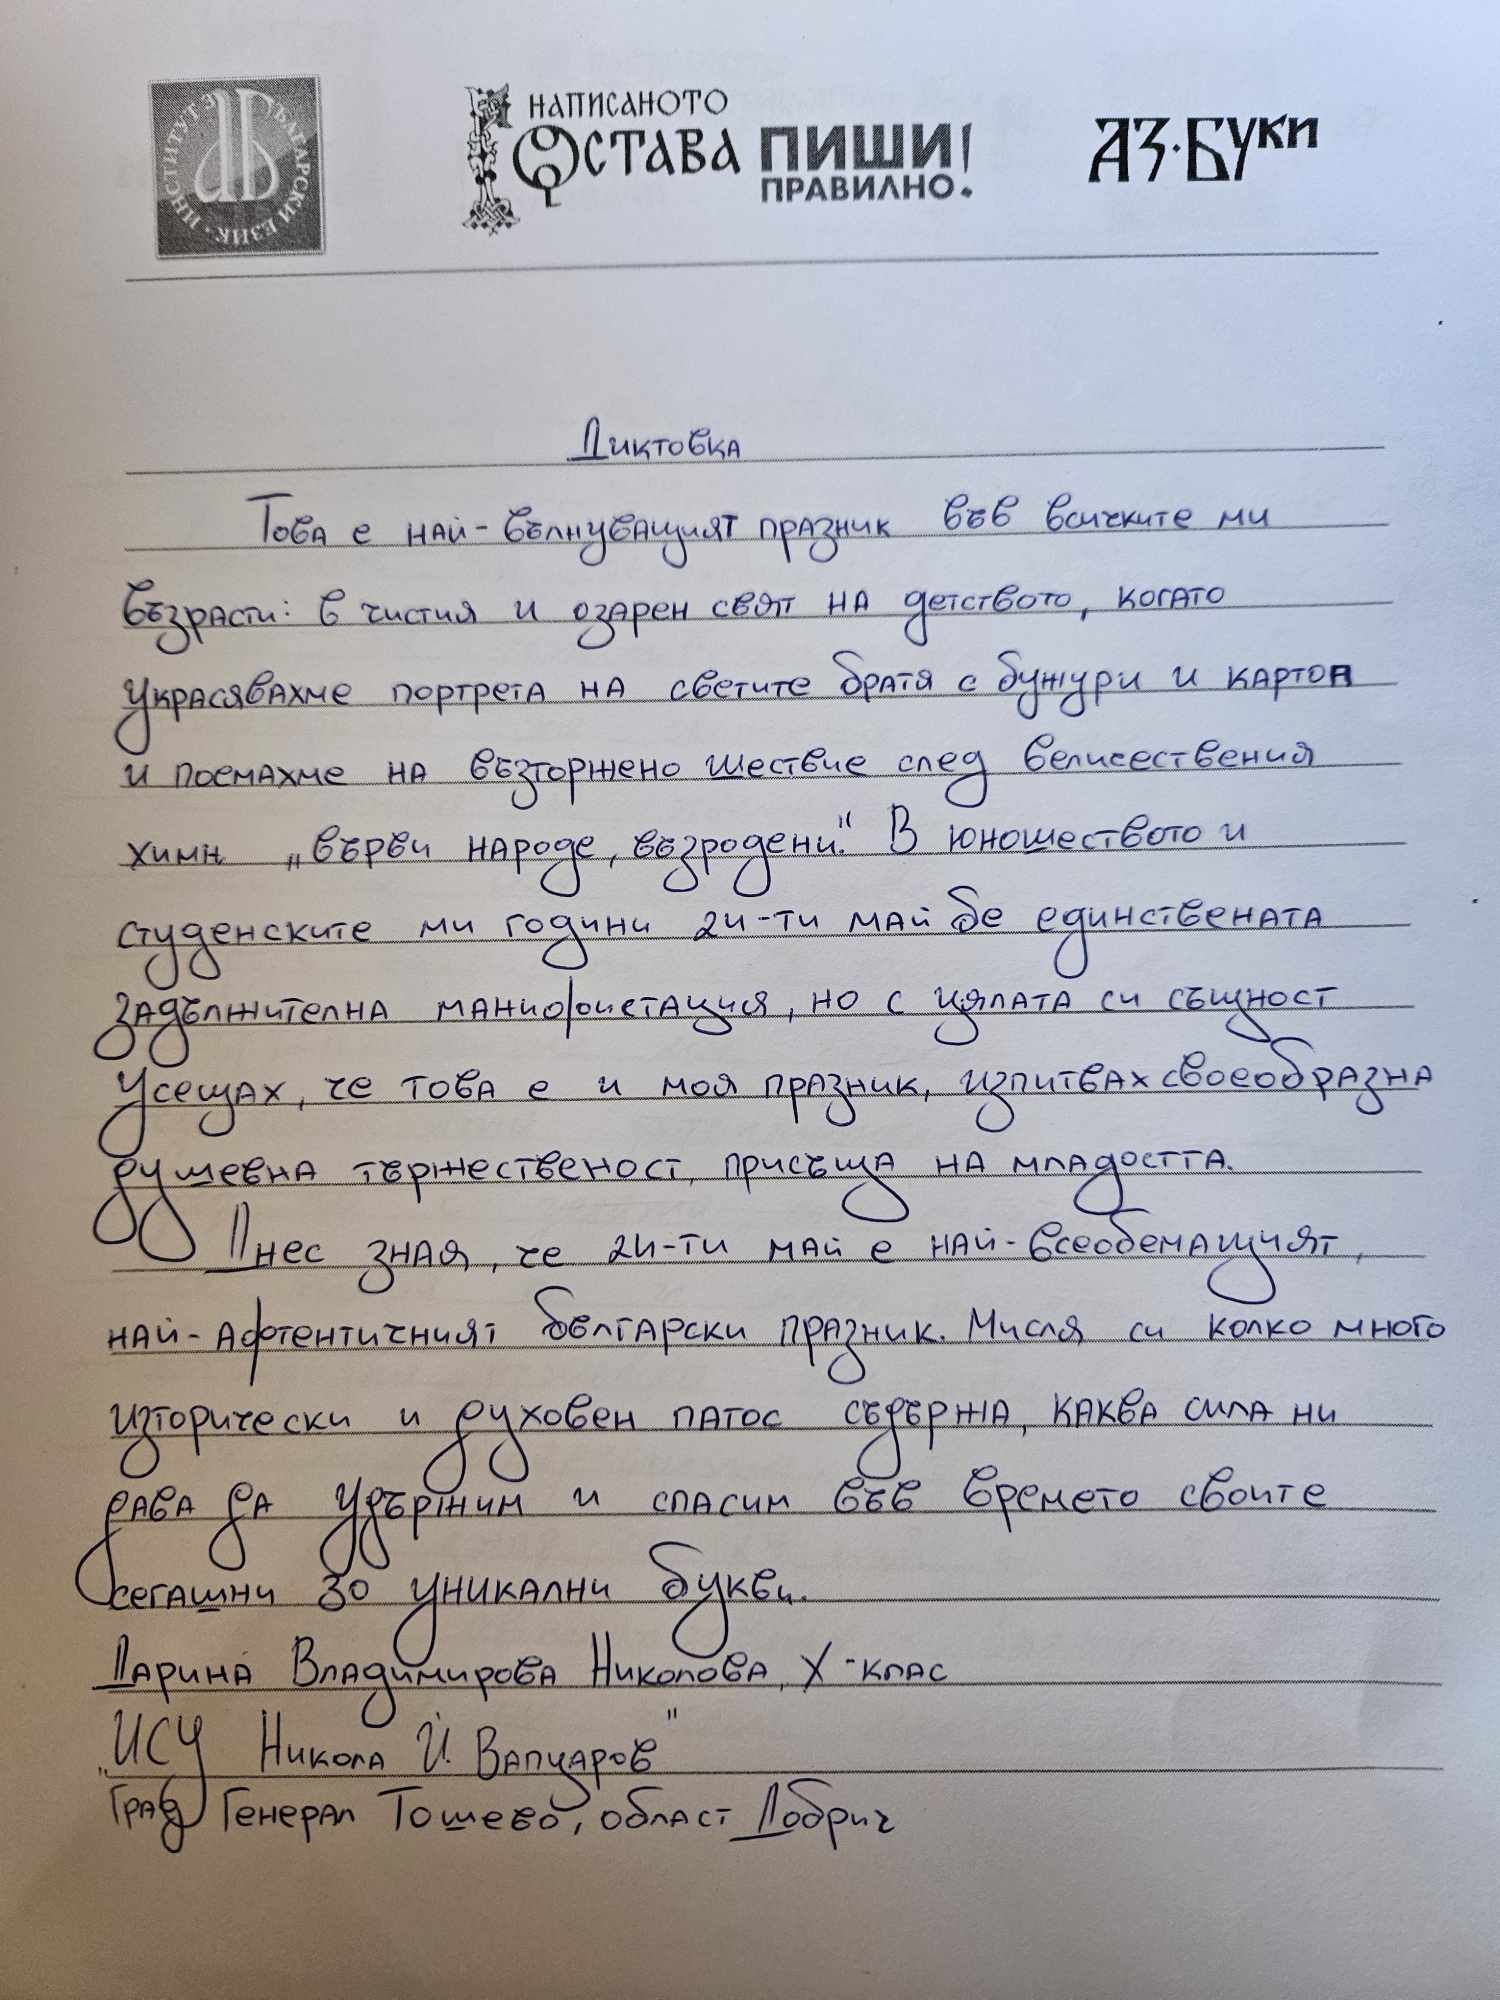 ИНСТИТУТ ЗА БЪЛГАРСКИ ЕЗИК
НАПИСАНОТО
ОСТАВА ПИШИ
ПРАВИЛНО!
АЗ·БУКИ
Диктовка
Това е най-вълнуващият празник във всичките ми
възрасти: в чистия и озарен свят на детството, когато
украсявахме портрета на светите братя с бужури и картон
и поемахме на възторжено шествие след велисествения
химн „върви народе, възродени." В юношеството и
студенските ми години 24-ти май бе единствената
задължителна манифистация, но с цялата си същност
усещах, че това е и моя празник, изпитвах своеобразна
душевна тържественост, присъща на младостта.
Днес зная, че 24-ти май е най-всеобемащият,
най-афтентичният български празник. Мисля си колко много
изторически и духовен патос съдържа, каква сила ни
дава да удържим и спасим във времето своите
сегашни 30 уникални букви.
Дарина Владимирова Николова, X-клас
„ИСУ Никола Й. Вапцаров"
Град Генерал Тошево, област Добрич